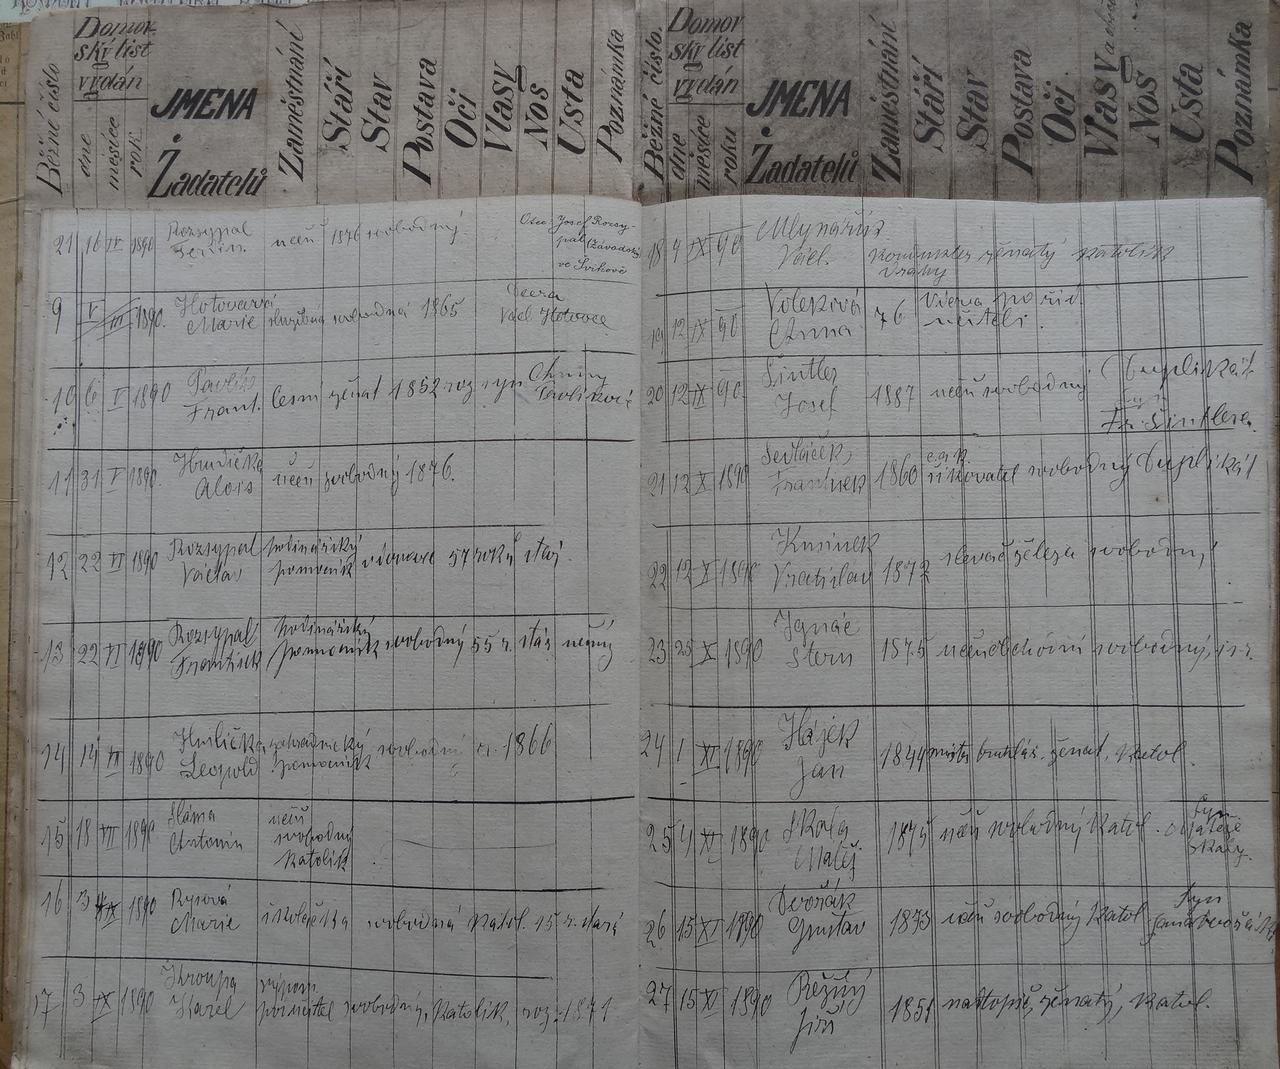 Běžné číslo
Domovský list vydán
dne
měsíce
roku
JMENA Žadatelů
Zaměstnání
Stáří
Stav
Postava
Oči
Vlasy
Nos
Usta
Poznámka
21 16 IV 1890 Rozsypal učeň 1876 svobodný. Otec: Josef Rozsy-
pal
ve Svikově
9 V III 1890. Hotovcová Marie služebná svobodná 1865 Dcera
Václ. Hotovce
10 6 V 1890 Pavlík Frant. ženat 1852 roz syn
Pavlíkové
11 31 V 1890. Hrudička Alois učeň svobodný 1876.
12 22 VI 1890 Rozsypal Václav hodinářský pomocník vdovec 57 roků starý.
13 22 VI 1890 Rozsypal František hodinářský pomocník svobodný 55 r. stár němý
14 14 VII 1890 Hrdlička Leopold zahradnický pomocník svobodný 1866
15 18 VII 1890 Sláma Antonín učeň svobodný katolík
16 3 IX 1890 Rysová Marie školačka svobodná katol. 15 r. stará
17 3 IX 1890 Kroupa Karel svobodný, katolík, roz. 1871
Běžné číslo.
Domovský list vydán
dne
měsíce
roku
JMENA Žadatelů
Zaměstnání
Stáří
Stav
Postava
Oči
Vlasy
Nos
Usta
Poznámka
18 4 IX 90 Mlynařík Václ. konduktér dráhy ženatý katolík
19 12 IX 90 Voleková Anna 76 Vdova po říd. učiteli.
20 12 IX 90 Šintler Josef 1887 učeň svobodný (Duplikát
syn
Fr. Šintlera.
21 12 X 1890 Sedláček, František 1860 svobodný Duplikát
22 12 X 1890 Vratislav 1872 slevač železa svobodný
23 25 X 1890 Ignác Stern 1875 učeň obchodní svobodný, isr.
24 1 XI 1890 Hájek Jan 1844 ženat, katol.
25 4 XI 1890 Skala Matěj 1875 učeň svobodný katol. Syn
Matěje
Skaly.
26 15 XI 1890 Dvořák Gustav 1873 učeň svobodný katol Syn
Jana Dvořáka
27 15 XI 1890 Režný Jiří 1851 ženatý, katol.